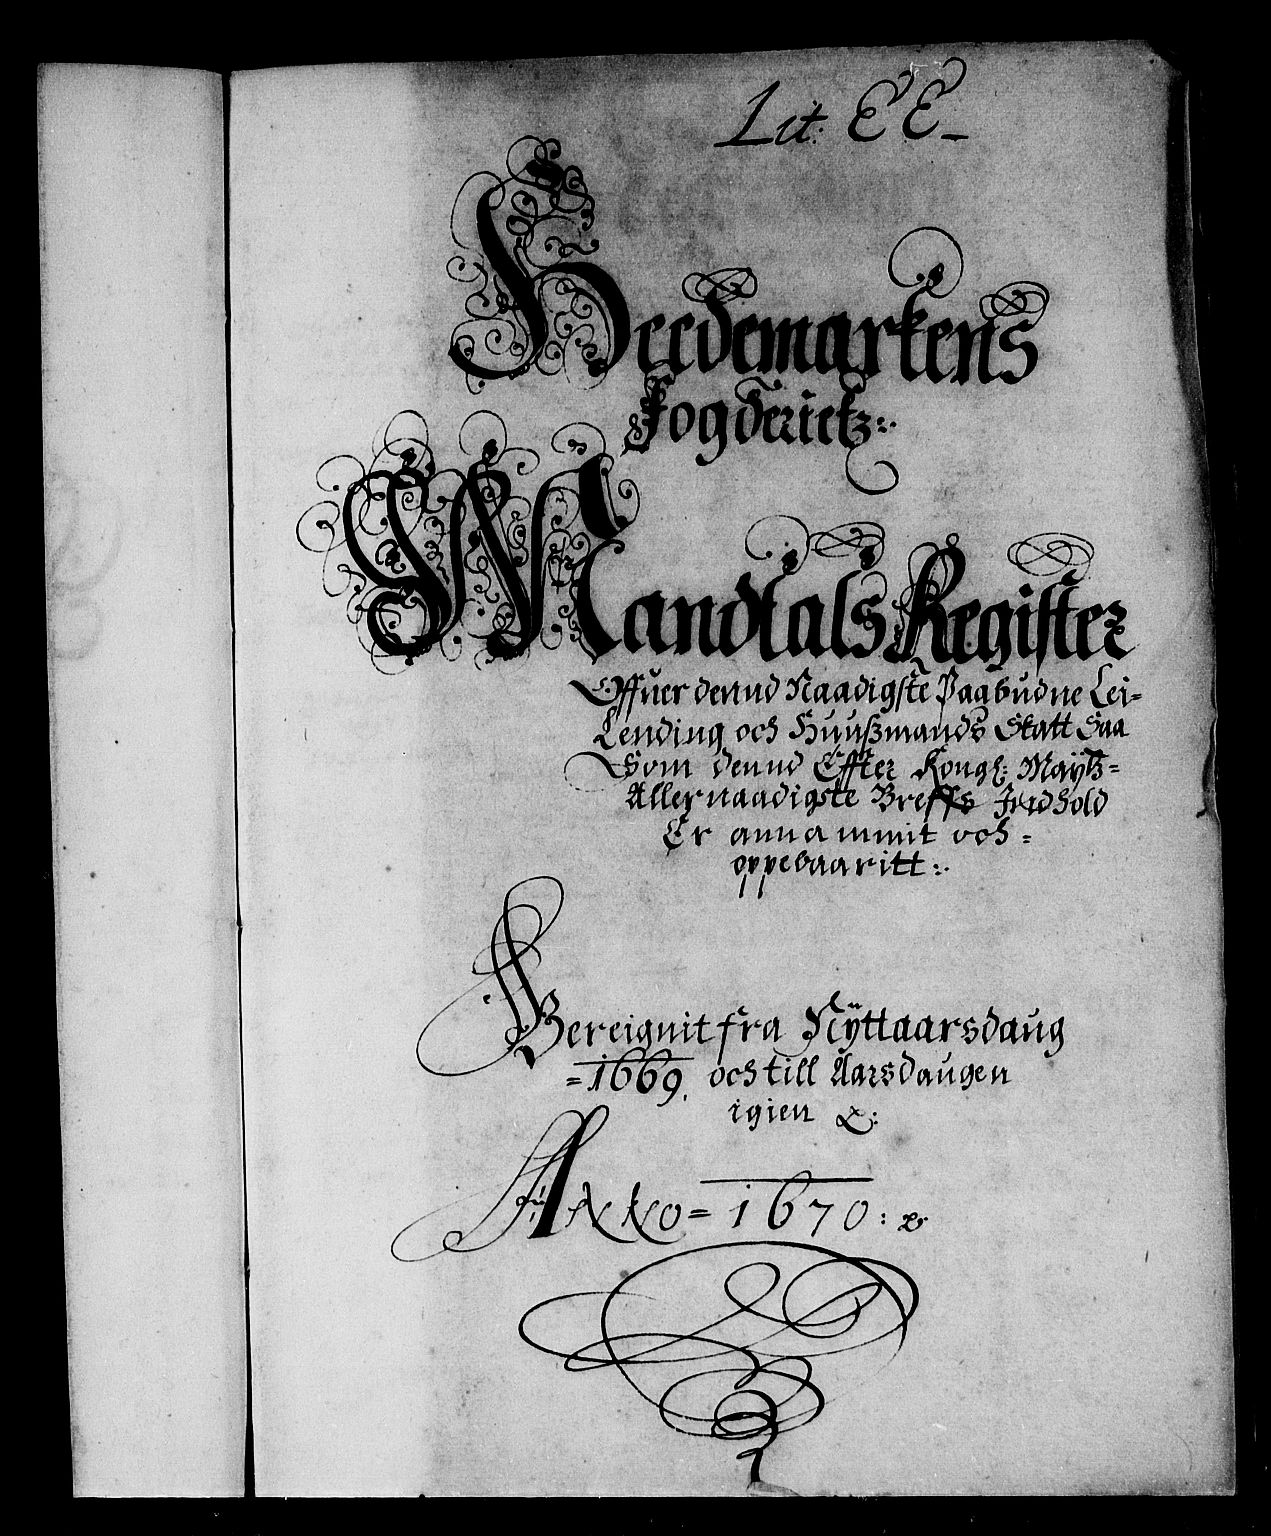 Lit: EE
Heedemarkens
Fogderietz:.
Mandtals Register
Offuer dennd Naadigste Paabudne Lei=
Lending och Huußmands Skatt Saa
Som dennd Effter Kongl: Maytz=
Allernaadigste Breffs Indhold
Er annammit och=
oppebaaritt:.
Bereignit fra Nÿttaarsdaug
=1669. och till Aarsdaugen
igien &:
Anno=1670:&